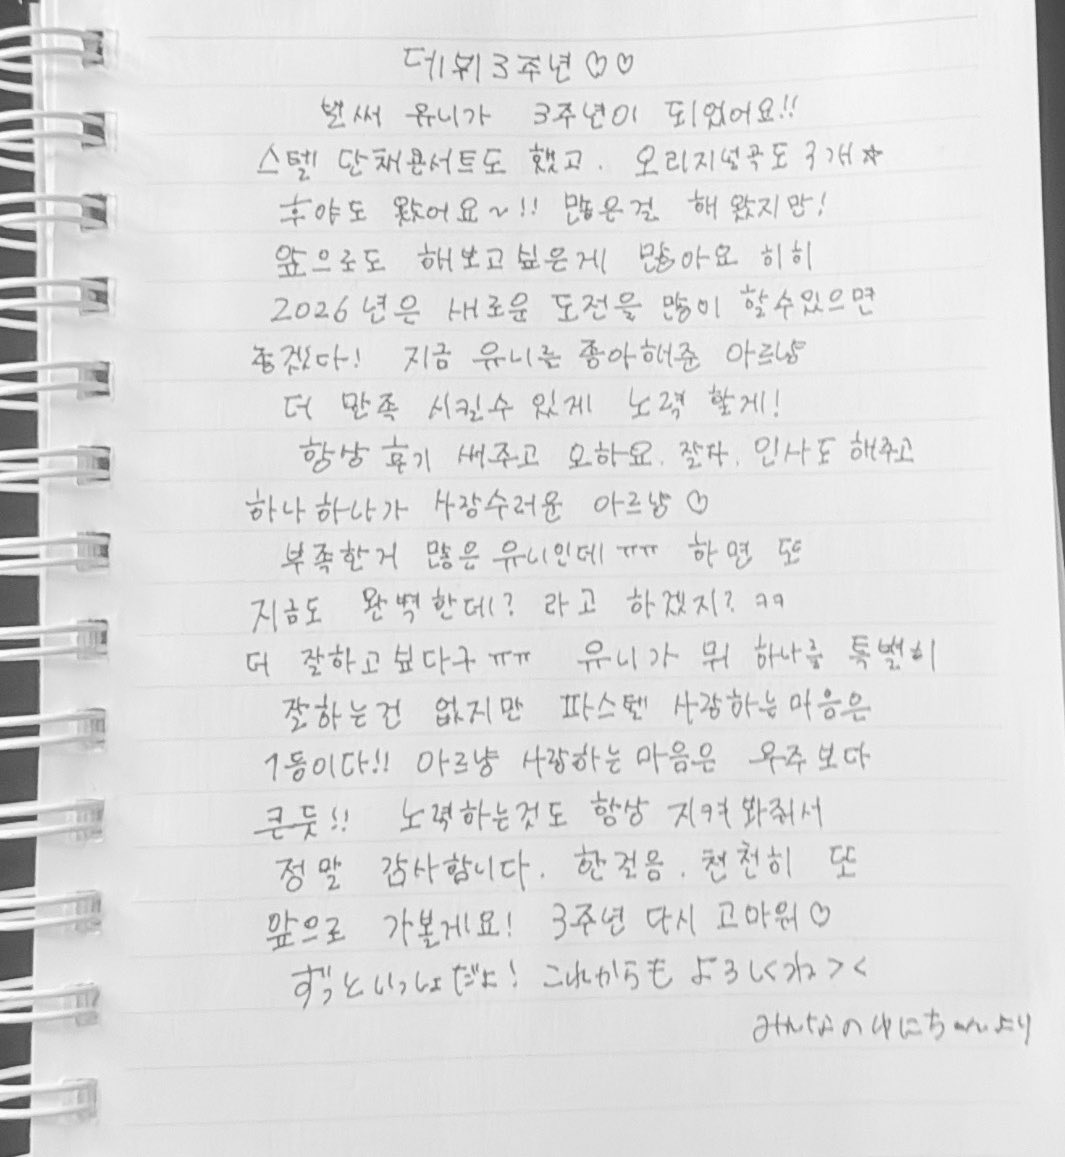 데뷔3주년♡♡
벌써 유니가 3주년이 되었어요!!
스텔 단체콘서트도 했고. 오리지널곡도 3개☆
후야도 왔어요~!! 많은걸 해 왔지만!
앞으로도 해보고싶은게 많아요 히히
2026년은 새로운 도전을 많이 할수있으면
좋겠다! 지금 유니를 좋아해준 아르냥
더 만족 시킬수 있게 노력 할게!
항상 후기 써주고 오하요. 잘자. 인사도 해주고
하나하나가 사랑스러운 아르냥♡
부족한거 많은 유니인데ㅠㅠ 하면 또
지금도 완벽한데? 라고 하겠지? ㅋㅋ
더 잘하고싶다구ㅠㅠ 유니가 뭐 하나를 특별히
잘하는건 없지만 파스텔 사랑하는마음은
1등이다!! 아르냥 사랑하는마음은 우주보다
큰듯!! 노력하는것도 항상 지켜봐줘서
정말 감사합니다. 한걸음. 천천히 또
앞으로 가볼게요! 3주년 다시 고마워♡
ずっといっしょだよ! これからも よろしくね><
みんなのゆにちゃんより